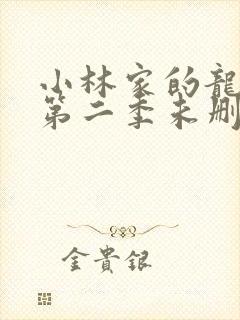 小林家的龍
第二季未刪
金貴銀